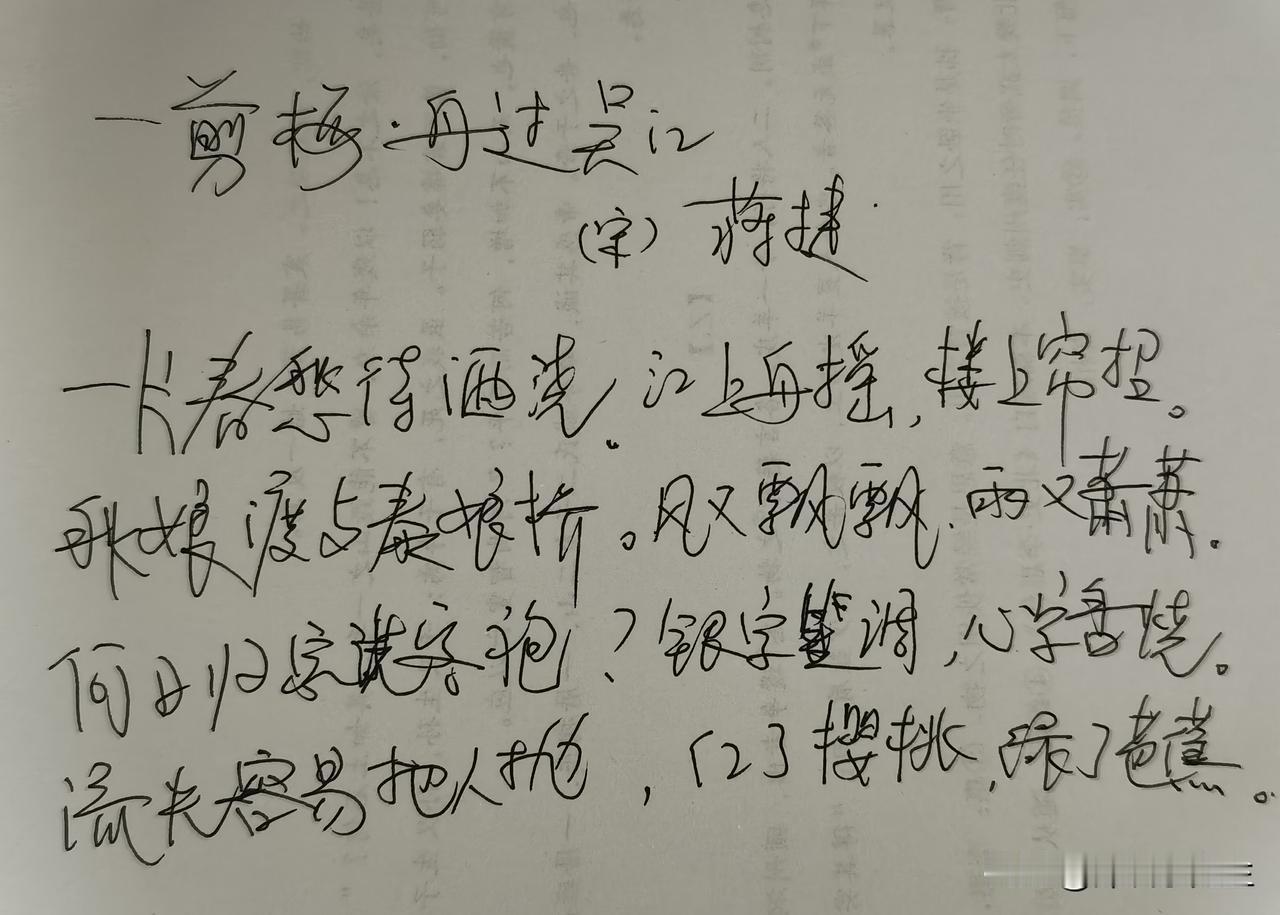 一剪梅·再过吴江
（宋）蒋捷
一片春愁待酒浇。江上舟摇，楼上帘招。
秋娘渡与泰娘桥。风又飘飘，雨又萧萧。
何日归家洗客袍？银字笙调，心字香烧。
流光容易把人抛，红了樱桃，绿了芭蕉。